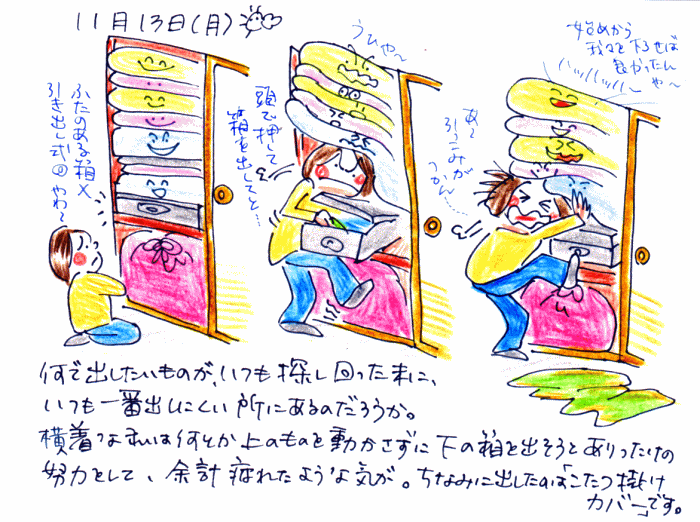 11月13日(月)
ふたのある箱×
引き出し式◎やわ〜
うひゃ〜
頭で押して
箱を出してと…
あ〜
引っこみが
つかん…
始めから
我々を下ろせば
良かったん
や〜
ハッハッハッ
何で出したいものが、いつも探し回った末に、
いつも一番出しにくい所にあるのだろうか。
横着な私は何とか上のものを動かさずに下の箱を出そうとありったけの
努力をして、余計疲れたような気が。ちなみに出したのは「こたつ掛け
カバー」です。